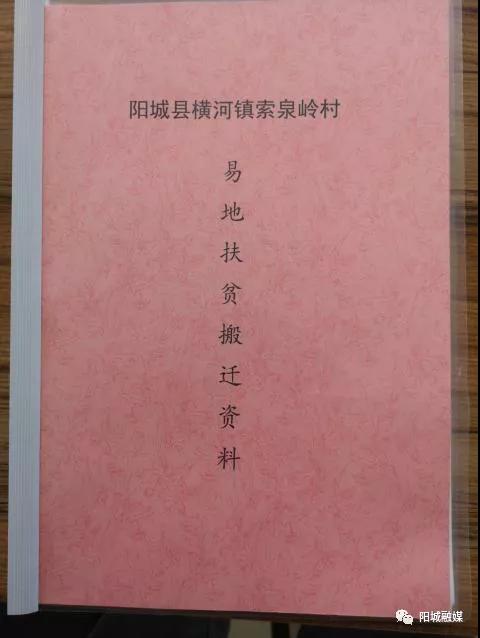 阳城县横河镇索泉岭村
易地扶贫搬迁资料
阳城融媒